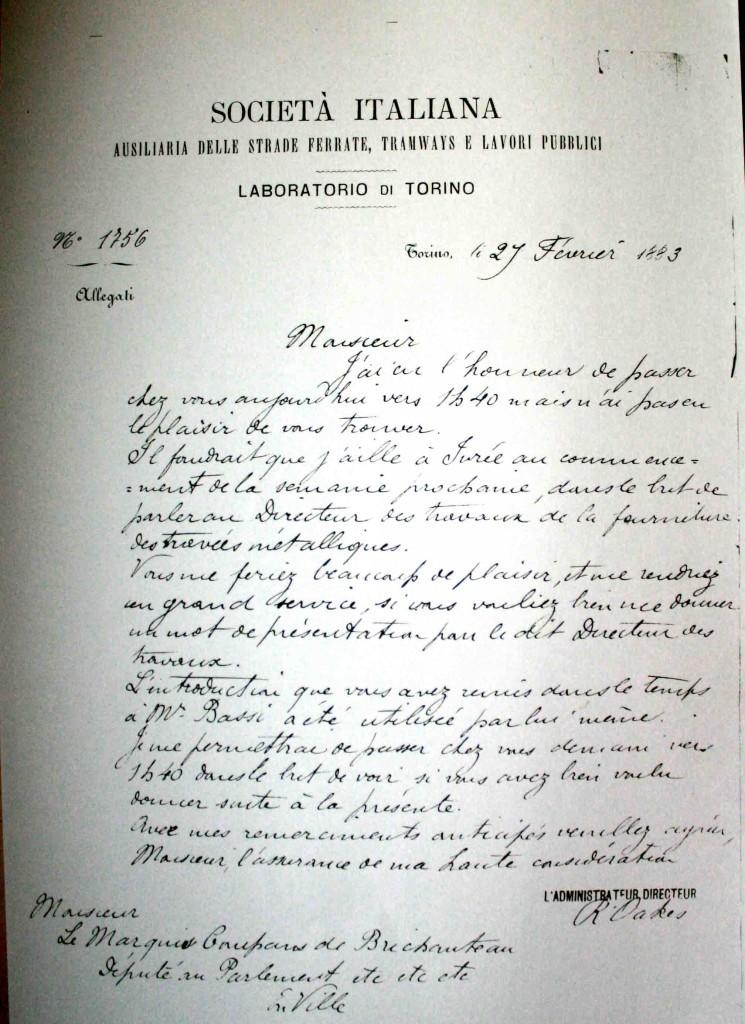 SOCIETÀ ITALIANA
AUSILIARIA DELLE STRADE FERRATE, TRAMWAYS E LAVORI PUBBLICI
LABORATORIO DI TORINO
Nº 1756
Torino, li 27 Février 1883
Allegati
Monsieur
J'ai eu l'honneur de passer
chez vous aujourd'hui vers 1h40 mais n'ai pas eu
le plaisir de vous trouver.
Il faudrait que j'aille à Ivrée au commence=
=ment de la semaine prochaine, dans le but de
parler au Directeur des travaux de la fourniture
des travées métalliques.
Vous me feriez beaucoup de plaisir, et me rendriez
un grand service, si vous vouliez bien me donner
un mot de présentation pour le dit Directeur des
travaux.
L'introduction que vous avez remis dans le temps
à Mr Bassi a été utilisée par lui même.
Je me permettrai de passer chez vous demain vers
1h40 dans le but de voir si vous avez bien voulu
donner suite à la présente.
Avec mes remerciments anticipés veuillez agréer,
Monsieur, l'assurance de ma haute considération
L'ADMINISTRATEUR DIRECTEUR
R Oakes
Monsieur
Le Marquis Compans de Brichanteau
Député au Parlement etc etc etc
En Ville